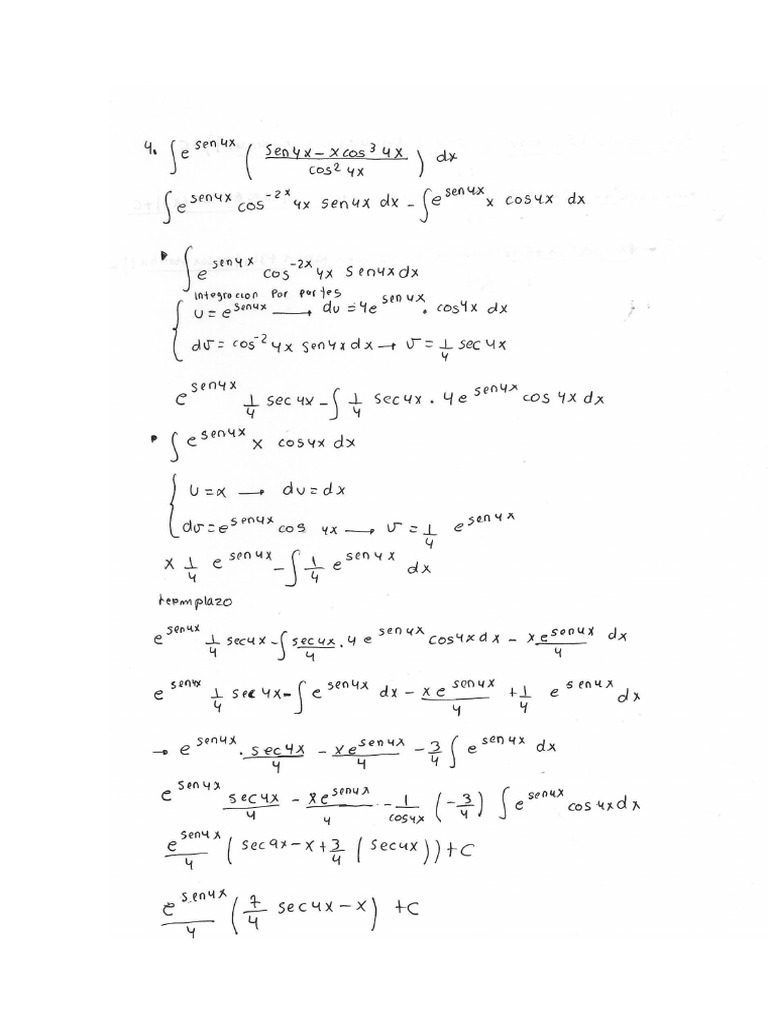 4. ∫e^(sen4x) ( (sen4x - xcos³4x) / (cos²4x) ) dx
∫e^(sen4x) cos^(-2x) 4x sen4x dx - ∫e^(sen4x) x cos4x dx
∫e^(sen4x) cos^(-2x) 4x sen4x dx
integracion por partes
u = e^(sen4x) → du = 4e^(sen4x) . cos4x dx
dv = cos^(-2) 4x sen4x dx → v = 1/4 sec4x
e^(sen4x) 1/4 sec4x - ∫ 1/4 sec4x . 4e^(sen4x) cos4x dx
∫e^(sen4x) x cos4x dx
u = x → du = dx
dv = e^(sen4x) cos 4x → v = 1/4 e^(sen4x)
x 1/4 e^(sen4x) - ∫ 1/4 e^(sen4x) dx
e^(sen4x) 1/4 sec4x - ∫ sec4x/4 . 4 e^(sen4x) cos4x dx - xe^(sen4x)/4 dx
e^(sen4x) 1/4 sec4x - ∫e^(sen4x) dx - xe^(sen4x)/4 + 1/4 e^(sen4x) dx
→ e^(sen4x) . sec4x/4 - xe^(sen4x)/4 - 3/4 ∫e^(sen4x) dx
e^(sen4x) sec4x/4 - xe^(sen4x)/4 - 1/cos4x (-3/4) ∫e^(sen4x) cos4x dx
e^(sen4x)/4 (sec4x - x + 3/4 (sec4x)) + C
e^(sen4x)/4 (7/4 sec4x - x) + C